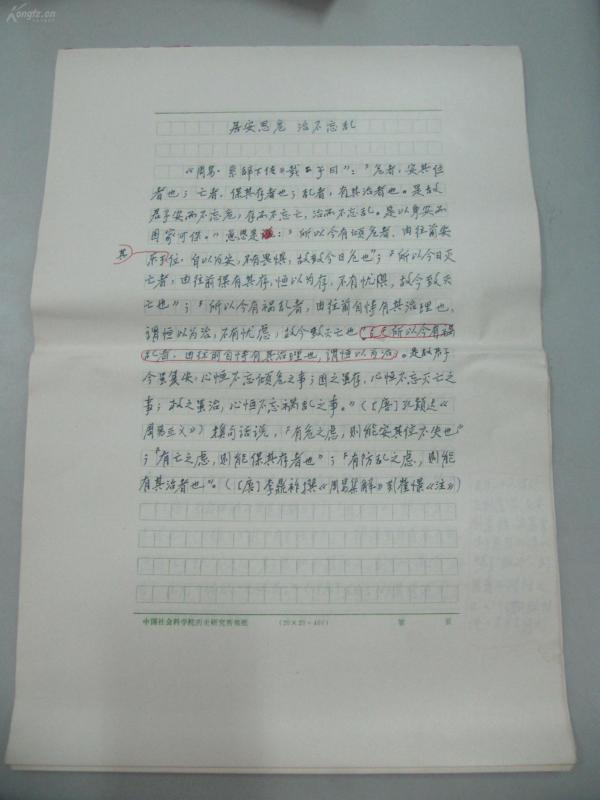 Kongfz.cn
居安思危 治不忘乱
《周易·系辞下传》载“子曰”：“危者，安其位
者也；亡者，保其存者也；乱者，有其治者也。是故
君子安而不忘危，存而不忘亡，治而不忘乱。是以身安而
国家可保。”意思是说：“所以今有倾危者，由往前安
其
乐于位，自以为安，不有畏惧，故致今日危也”；“所以今日灭
亡者，由往前保有其存，恒以为存，不有忧惧，故今致灭
亡也”；“所以今有祸乱者，由往前自恃有其治理也，
谓恒以为治，不有忧虑，故今致灭亡也 所以今有祸
乱者，由往前自恃有其治理也，谓恒以为治。是故君子
今虽复安，心恒不忘倾危之事；国之虽存，心恒不忘灭亡之
事；政之虽治，心恒不忘祸乱之事。”（［唐］孔颖达《
周易正义》）换句话说，“有危之虑，则能安其位不失也”
；“有亡之虑，则能保其存者也”；“有防乱之虑，则能
有其治者也”。（［唐］李鼎祚撰《周易集解》引崔憬《注》）
中国社会科学院历史研究所稿纸 （20×20=400） 第 页